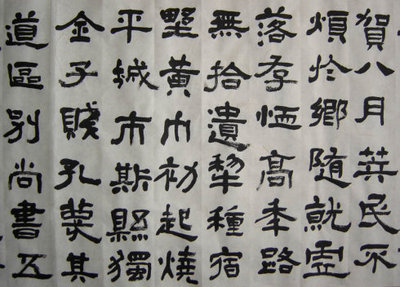 賀八月筭民不
煩於鄉隨就虛
落存恤高年路
無拾遺犁種宿
野黃巾初起燒
平城市斯縣獨
全子賤孔蔑其
道區別尚書五